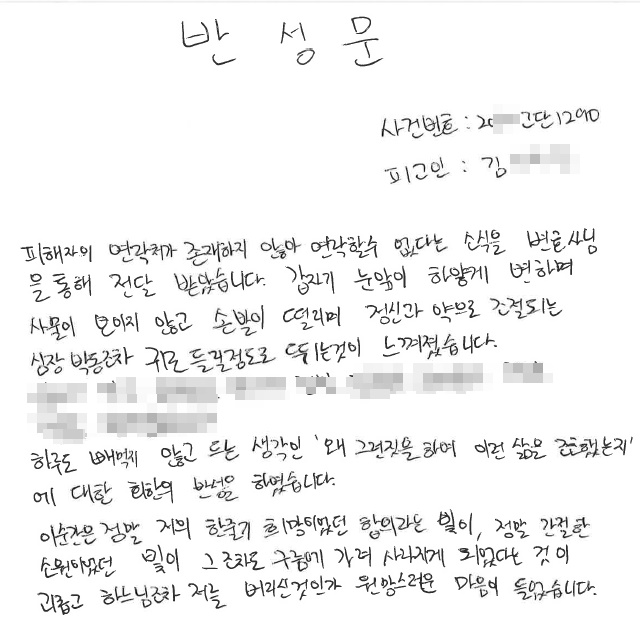 반성문
사건번호 : 20 고단1290
피고인 : 김
피해자의 연락처가 존재하지 않아 연락할수 없다는 소식을 변호사님
을 통해 전달 받았습니다. 갑자기 눈앞이 하얗게 변하며
사물이 보이지 않고 손발이 떨리며 정신과 약으로 조절되는
심장 박동조차 귀로 들릴정도로 뛰는것이 느껴졌습니다.
하루도 빼먹지 않고 드는 생각인 '왜 그런짓을 하여 이런 삶을 초래했는지'
에 대한 회한의 반성을 하였습니다.
이순간은 정말 저의 한줄기 희망이었던 합의라는 빛이, 정말 간절한
소원이었던 빛이 그조차도 구름에 가려 사라지게 되었다는 것이
괴롭고 하느님조차 저를 버리신것인가 원망스러운 마음이 들었습니다.